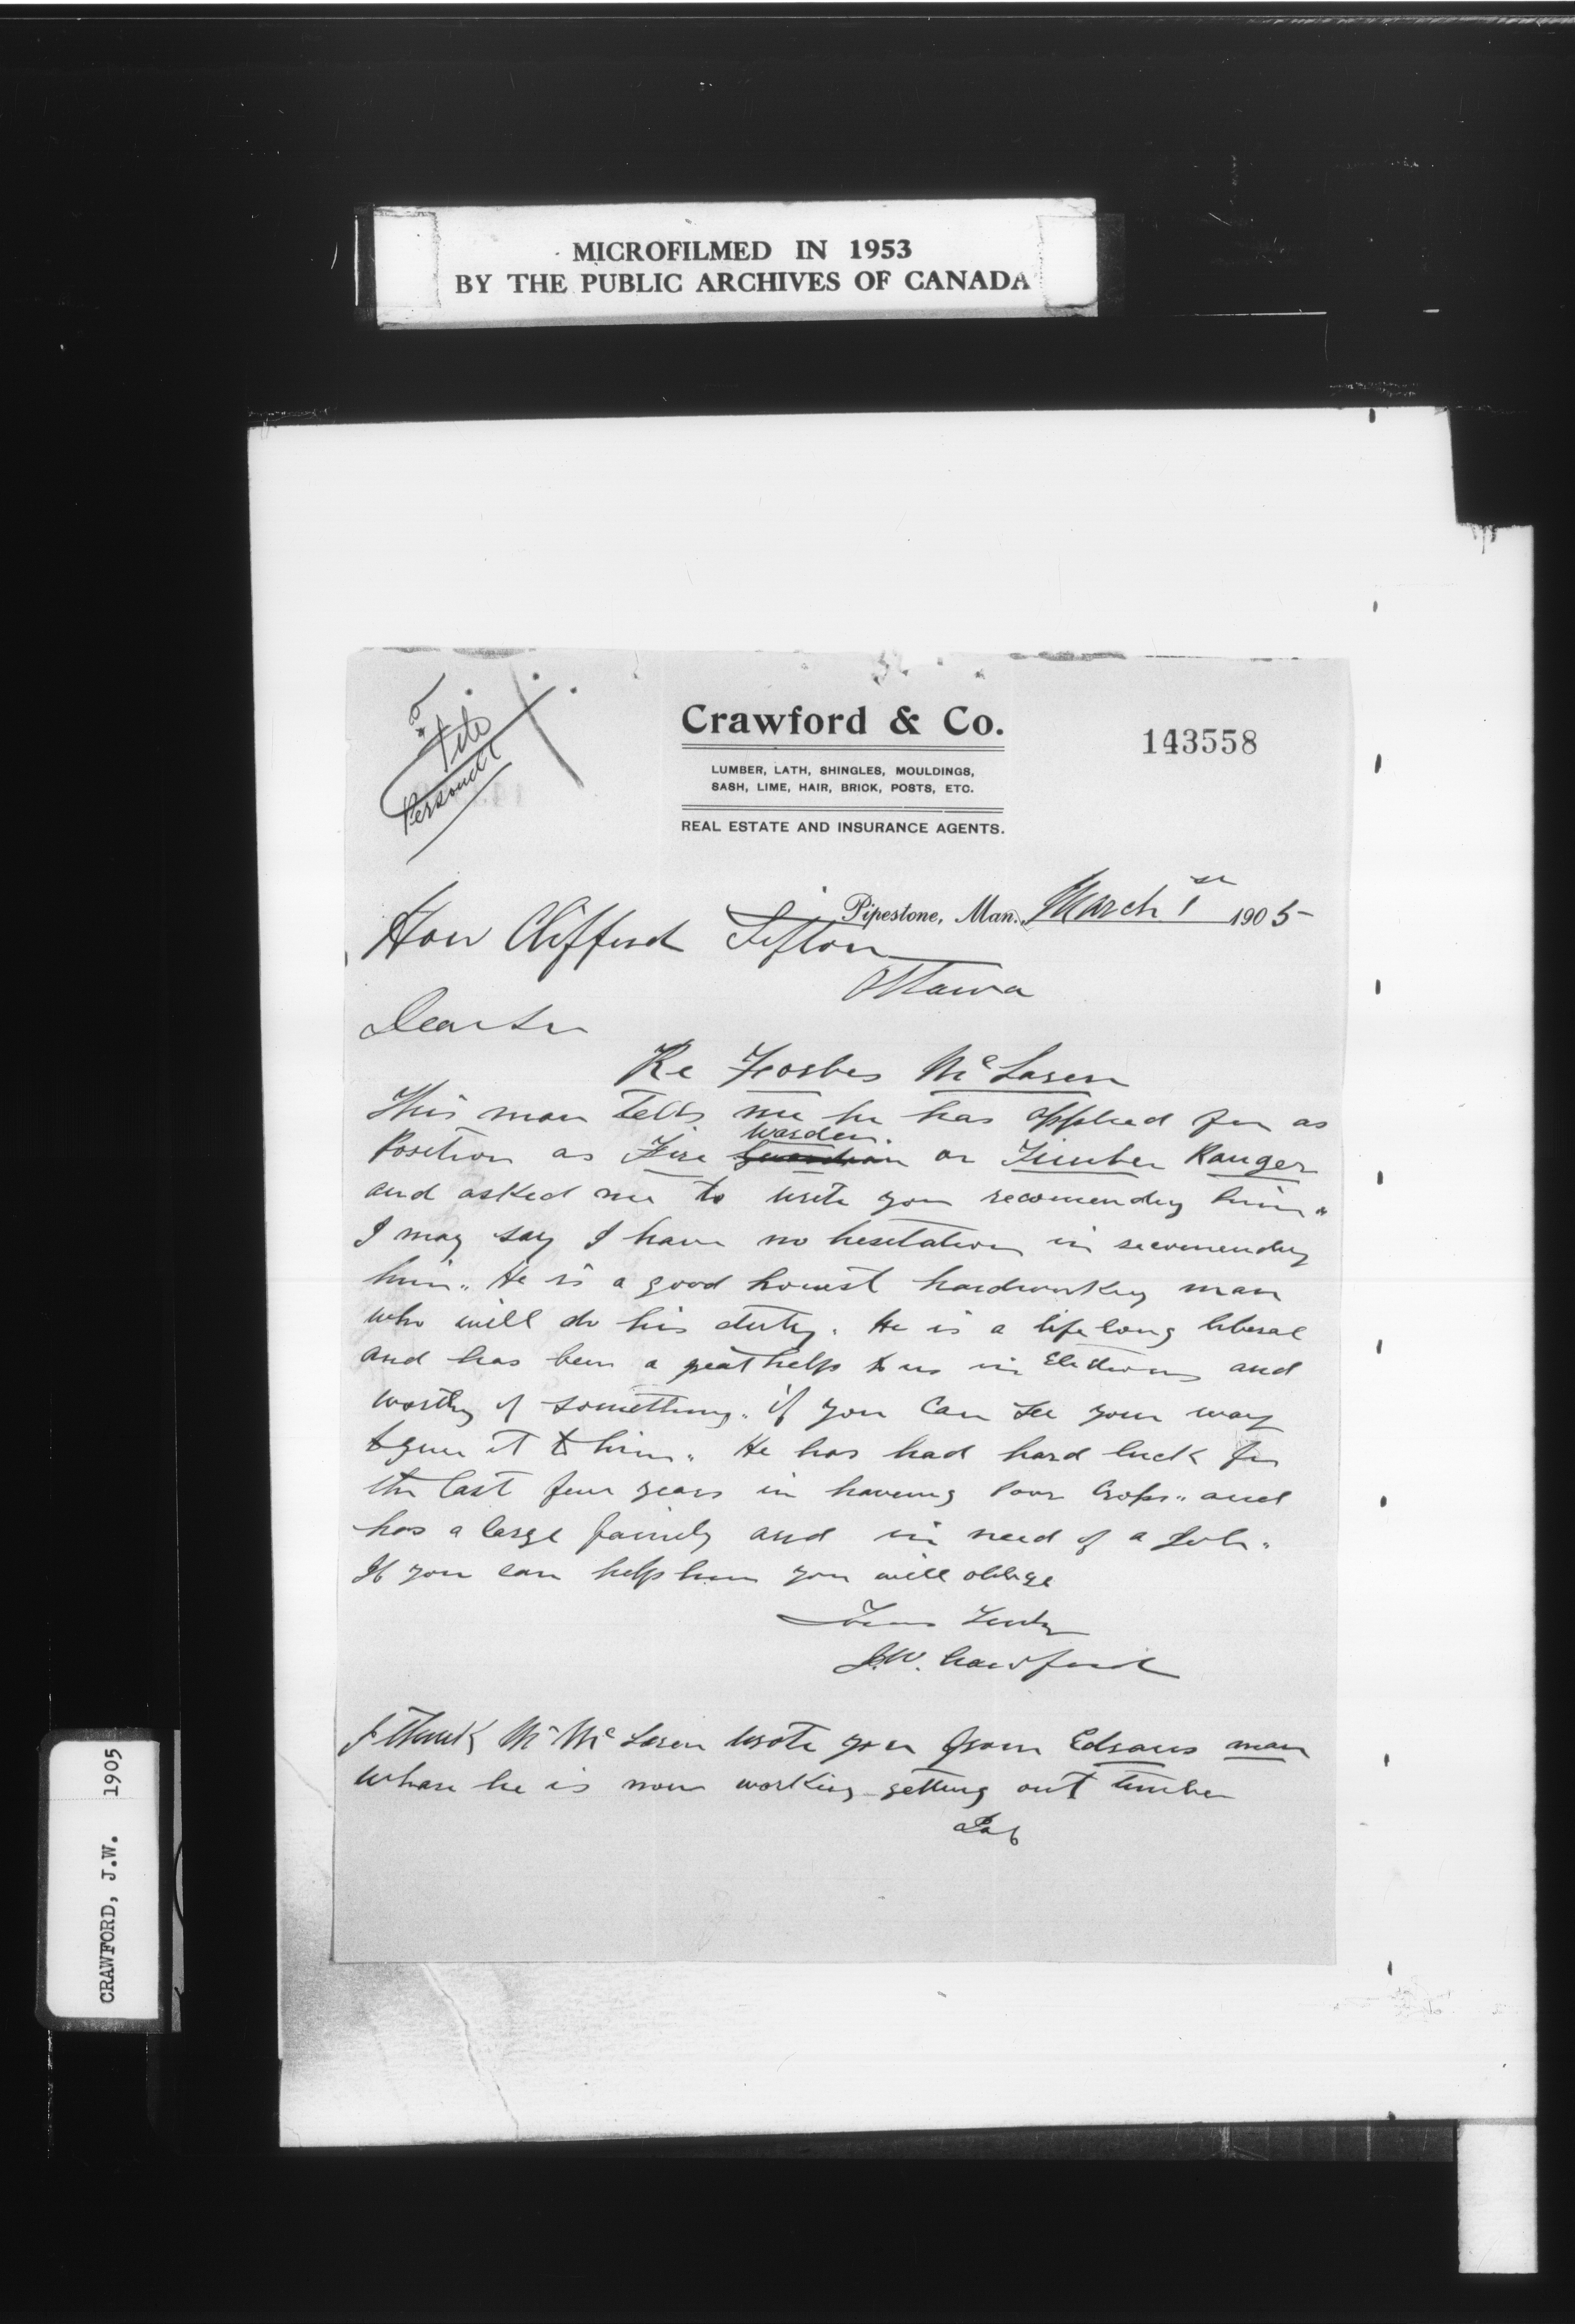 MICROFILMED IN 1953
BY THE PUBLIC ARCHIVES OF CANADA
File
Personal
Crawford & Co.
143558
LUMBER, LATH, SHINGLES, MOULDINGS,
SASH, LIME, HAIR, BRICK, POSTS, ETC.
REAL ESTATE AND INSURANCE AGENTS.
Pipestone, Man. March 1st 1905
Hon Clifford Sifton
Ottawa
Dear Sir
Re Forbes McLaren
This man tells me he has applied for as
Position as Fire Guardian Warden or Timber Ranger
and asked me to write you recomendg him"
I may say I have no hesitation in recomendg
him" He is a good honest hardworkg man
who will do his duty. He is a life long liberal
and has been a great help to us in Elections and
worthy of something" if you can see your way
to give it to him" He has had hard luck for
the last few years in haveing Poor Crops" and
has a large family and in need of a Job"
If you can help him you will oblige
Yours Truly
J.W. Crawford
I think Mr McLaren wrote you from Edsans man
Whare he is now working getting out timber
CRAWFORD, J.W. 1905